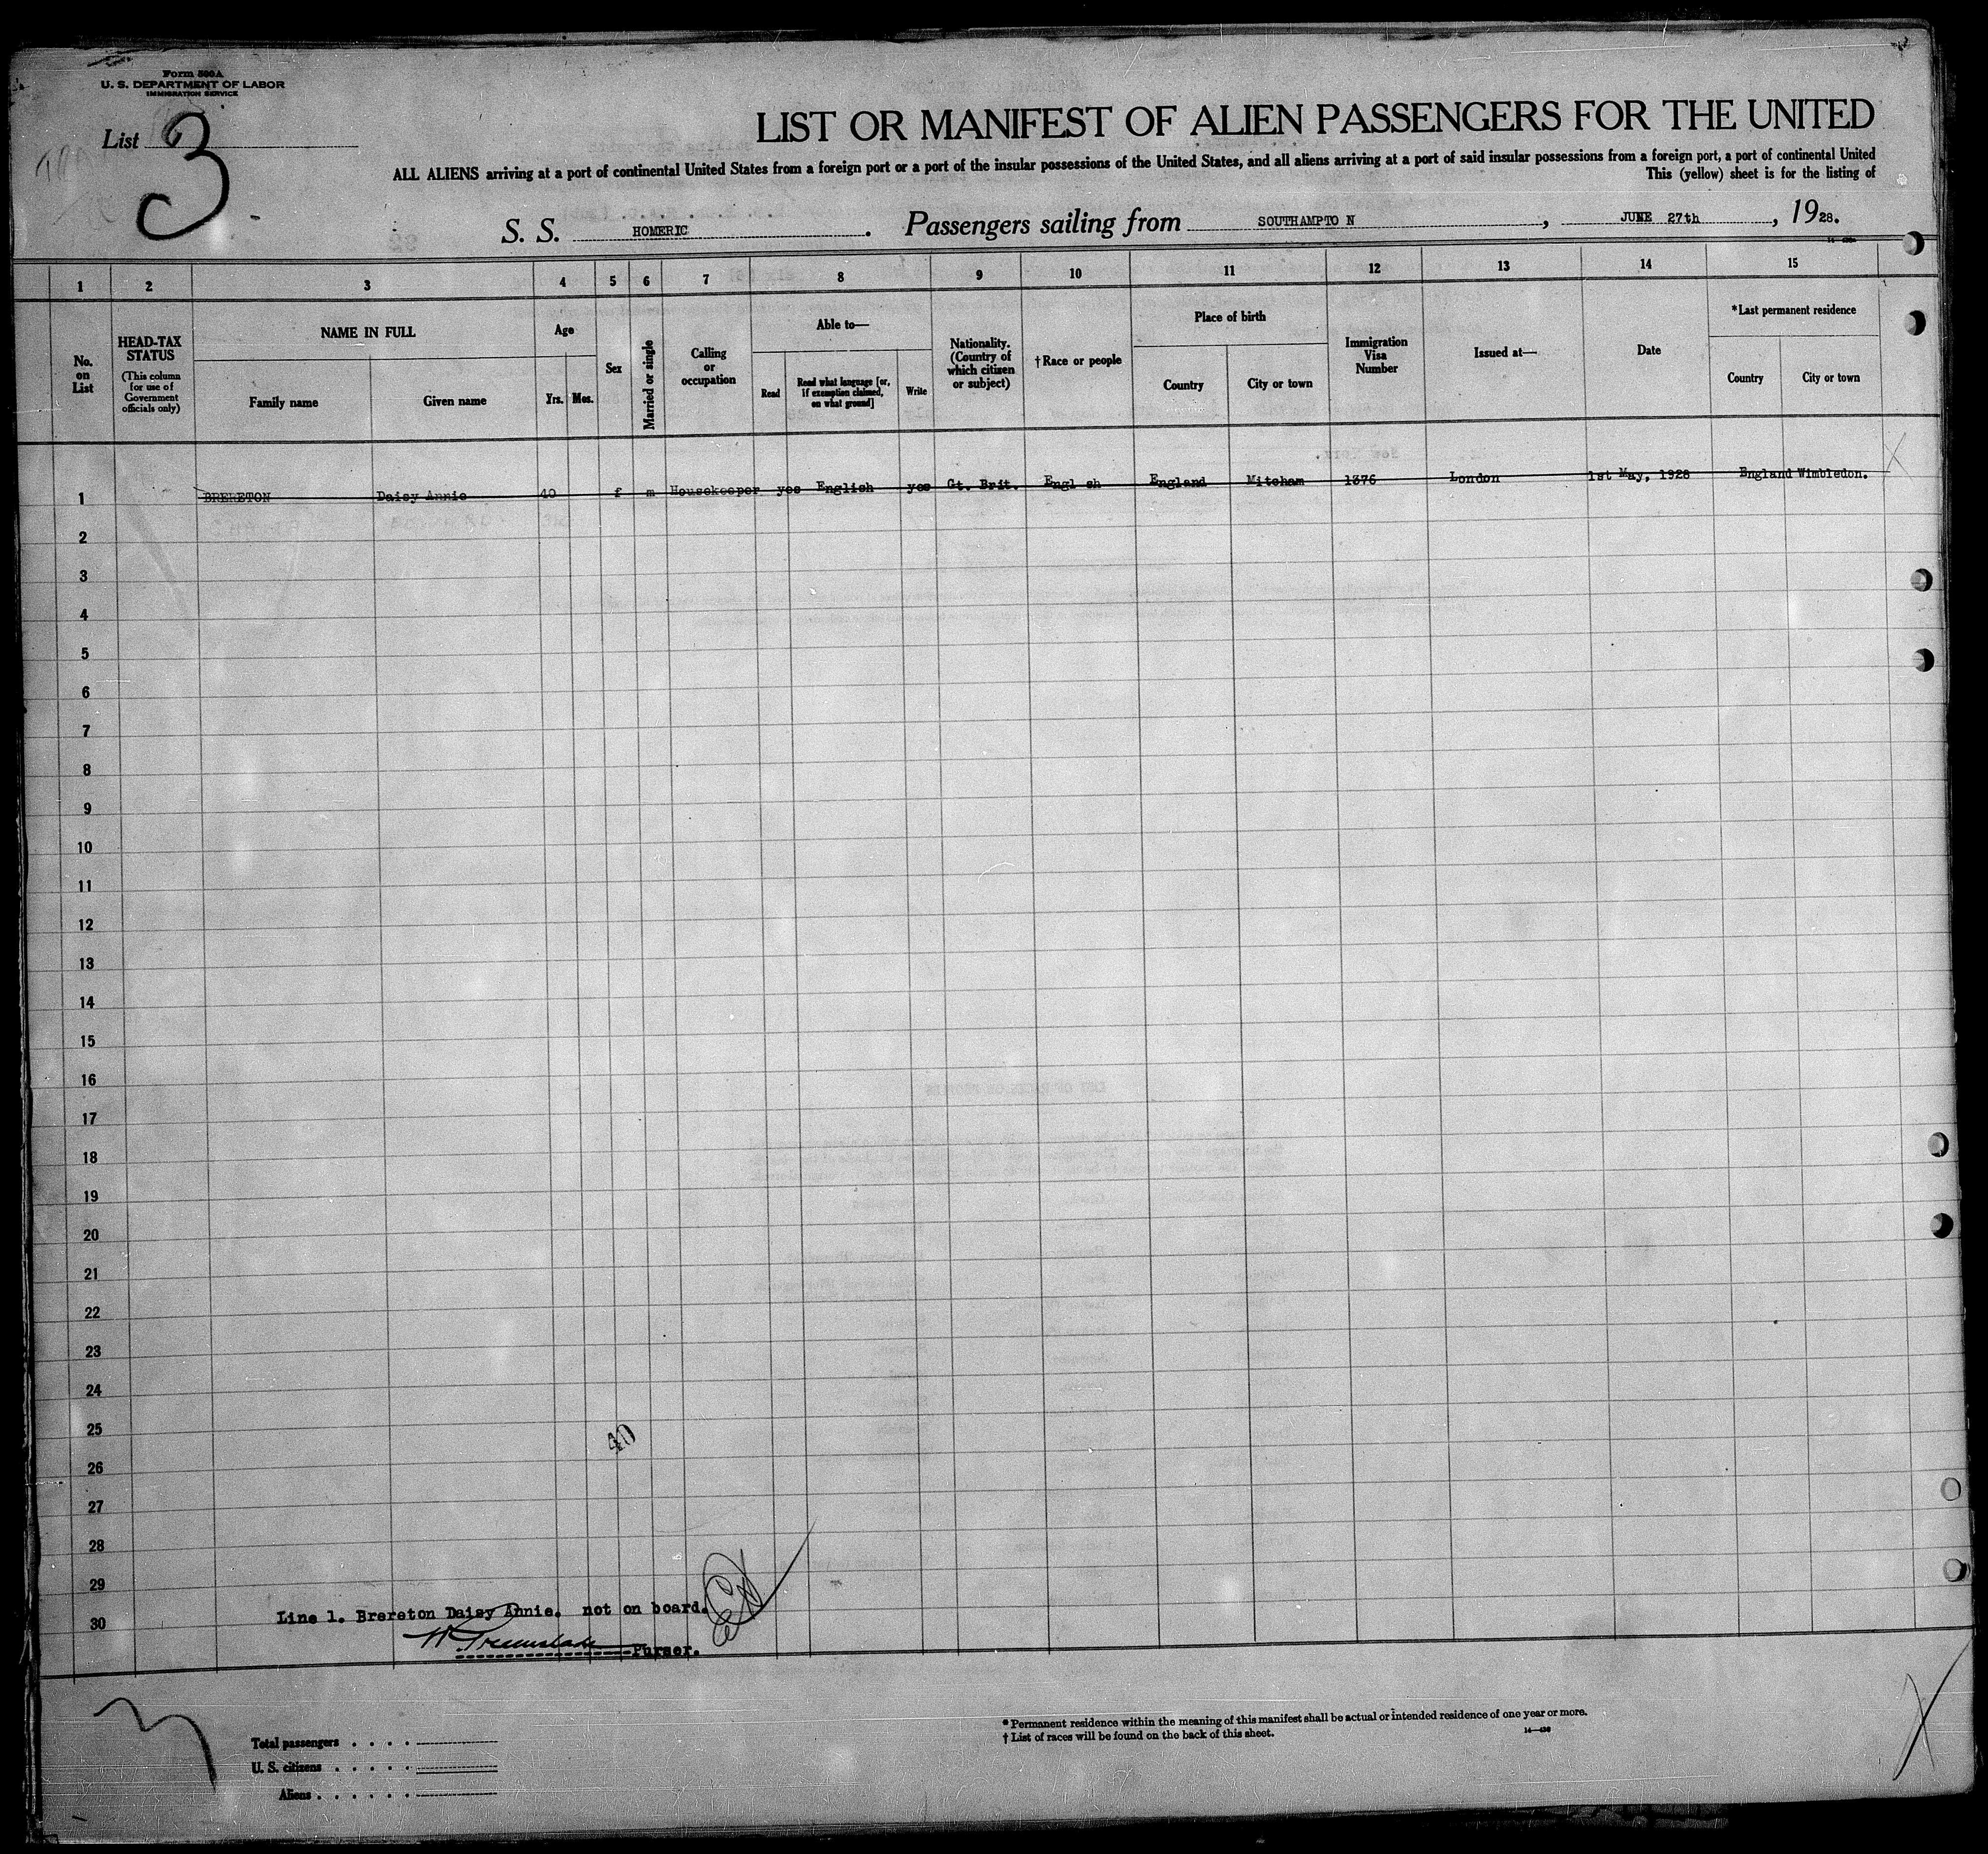 Form 500A
U. S. DEPARTMENT OF LABOR
IMMIGRATION SERVICE
List 3
LIST OR MANIFEST OF ALIEN PASSENGERS FOR THE UNITED
ALL ALIENS arriving at a port of continental United States from a foreign port or a port of the insular possessions of the United States, and all aliens arriving at a port of said insular possessions from a foreign port, a port of continental United
This (yellow) sheet is for the listing of
S. S. HOMERIC . Passengers sailing from SOUTHAMPTO N , JUNE 27th , 1928.
1 2 3 4 5 6 7 8 9 10 11 12 13 14 15
No. on List
HEAD-TAX STATUS
(This column for use of Government officials only)
NAME IN FULL
Family name
Given name
Age
Yrs. Mos.
Sex
Married or single
Calling or occupation
Able to—
Read
Read what language [or, if exemption claimed, on what ground]
Write
Nationality. (Country of which citizen or subject)
†Race or people
Place of birth
Country
City or town
Immigration Visa Number
Issued at—
Date
*Last permanent residence
Country
City or town
1 BRERETON Daisy Annie 40 f m Housekeeper yes English yes Gt. Brit. Engl sh England Mitcham 1376 London 1st May, 1928 England Wimbledon.
2
3
4
5
6
7
8
9
10
11
12
13
14
15
16
17
18
19
20
21
22
23
24
25
40
26
27
28
29
30
Line 1. Brereton Daisy Annie. not on board.
Purser.
*Permanent residence within the meaning of this manifest shall be actual or intended residence of one year or more.
† List of races will be found on the back of this sheet.
14—430
Total passengers . . . .
U. S. citizens . . . . .
Aliens . . . . . .